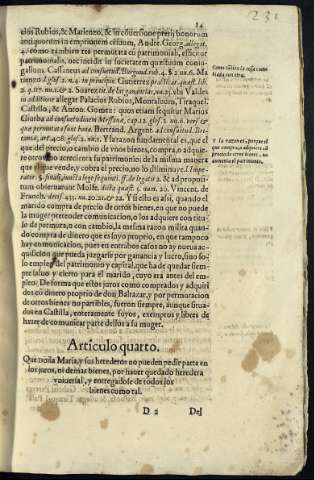 231
14
cios Rubios, & Matienzo, & in conuersione pretij bonorum
antiquorum in emptionem censuum, Andr. Georg. allegat.
4. como tambien res permutata cũ patrimoniali, efficitur
patrimonialis, nec incidit in societatem quæsitũ coniu-
gallium. Cassaneus ad consuetud. Burgund. rub. 4. §. 2. nu. 6. Ma-
tienzo d. glos. 2. n. 4. in principio. Gutierrez practicar. quæst. lib.
2. q. 117. nu. 2. & 2. Suarez in de las ganancias, nu. 25. vbi Valdes
in additione allegat Palacios Rubios, Montaluum, Tiraquel,
Castello, & Anton. Gomez: quos etiam sequitur Marius
Giurba ad consuetudinem Messanę, cap. 12. glos. 2. nu. 6. vers. &
que permutata sunt bona, Bertrand. Argent. ad consuet. Bri-
tannię, art. 418. glos. 2. nu. 10. Y la razon fundamental es, que el
que del precio, o cambio de sus bienes, compra, o adquie-
re otros no acrecienta su patrimonio; de la misma manera
que el que vende, y cobra el precio, no lo diminuye. l. Impe-
rator. §. final. iuncta lege sequenti. ff. de legatis 2. & ad proposi-
tum obseruanut Molfe. dicta quæst. 5. num. 20. Vincent. de
Franch. decis. 433. nu. 20. 21. & 22. Y si esto es assi, quando el
marido compra de precio de otros bienes, en que no puede
la muger pretender comunicacion, o los adquiere con titu-
lo de permuta, o con cambio, la mesma razon milita quando
los compra de dinero que es suyo proprio, en que tampoco
hay comunicacion, pues en entrãbos casos no ay nueua ac-
quisicion que pueda juzgarse por ganancia y lucro, sino so-
lo empleo del patrimonio y capital, que ha de quedar siem-
pre saluo y cierto para el marido, cuyo era antes del em-
pleo. De forma que estos juros como comprados y adquiri-
dos cõ dinero proprio de don Baltazar, y por permutacion
de otros bienes no partibles, fueron siempre, aunque situa-
dos en Castilla, enteramente suyos, exemptos, y libres de
hauerse de comunicar parte dellos a su muger.
Como cambiada la cosa comu-
nicada con otra.
Y la razon es, porque el
que compra, o adquiere de
precio de otros bienes, no
aumenta el patrimonio.
Articulo quarto.
Que doña Maria, y sus herederos no pueden pedir parte en
los juros, ni demas bienes, por hauer quedado heredera
vniuersal, y entregadose de todos los
bienes como tal.
D 2
Del